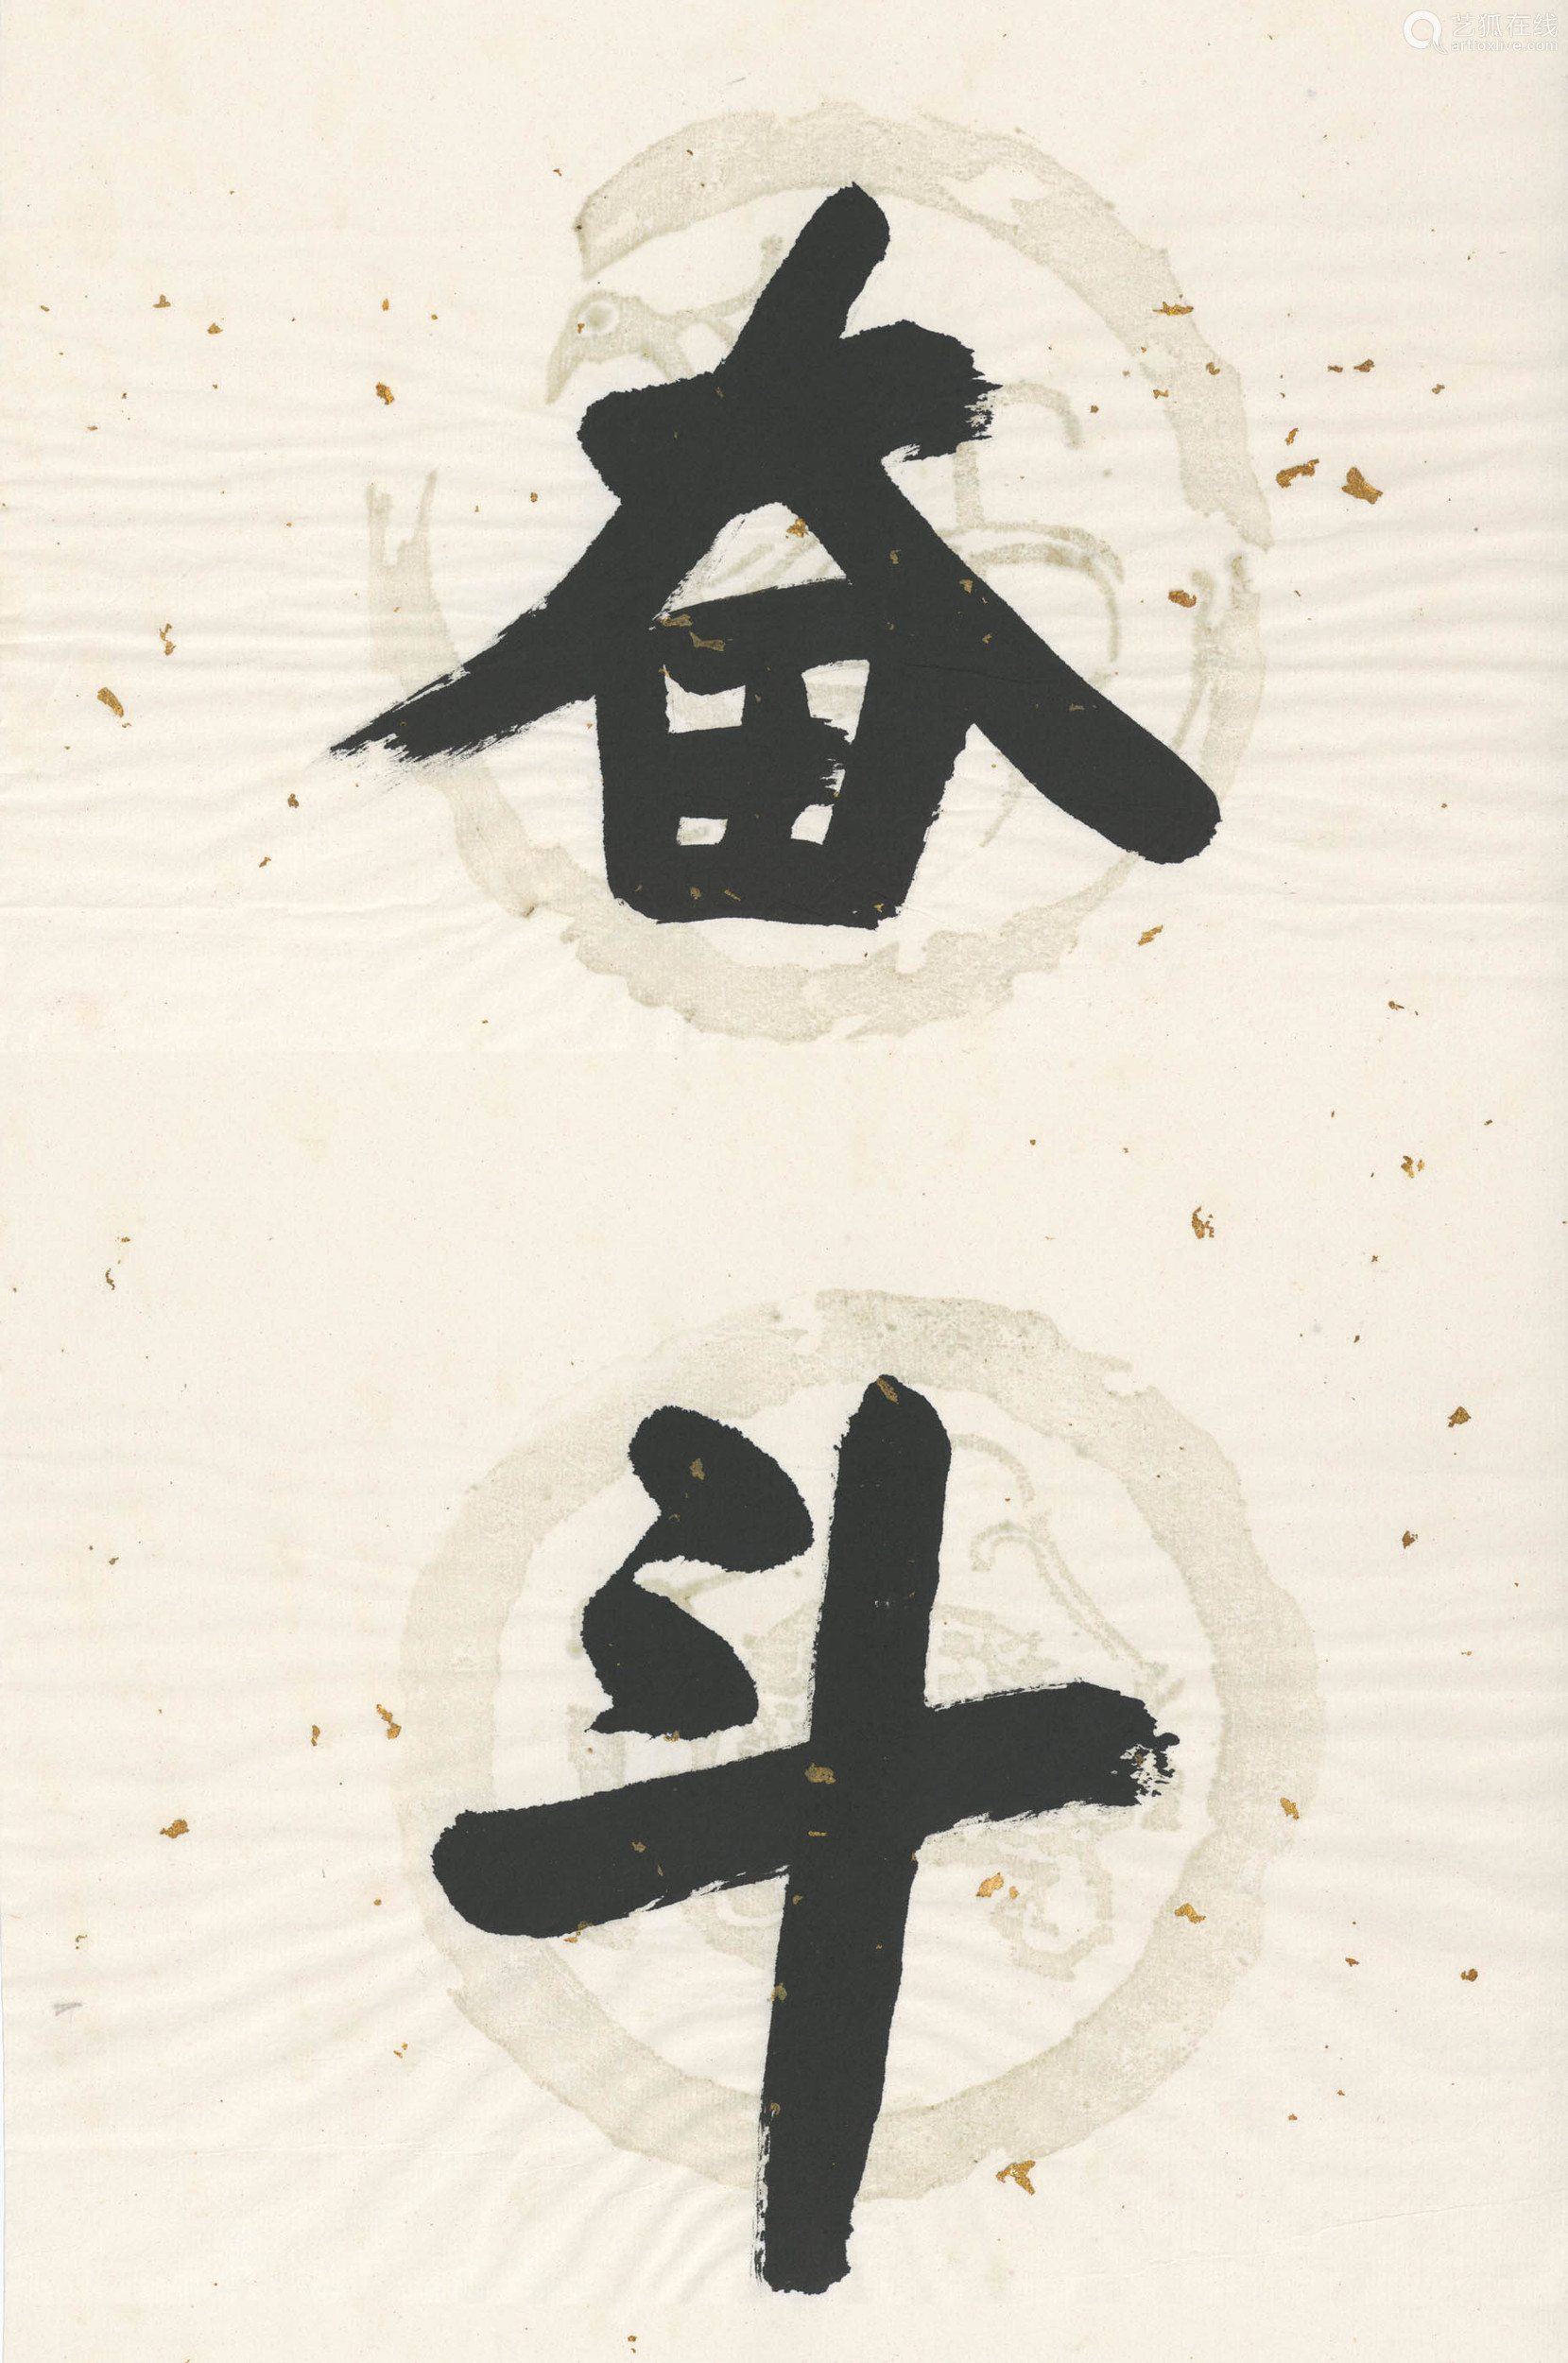 艺狐在线
artfoxlive.com
奋
斗